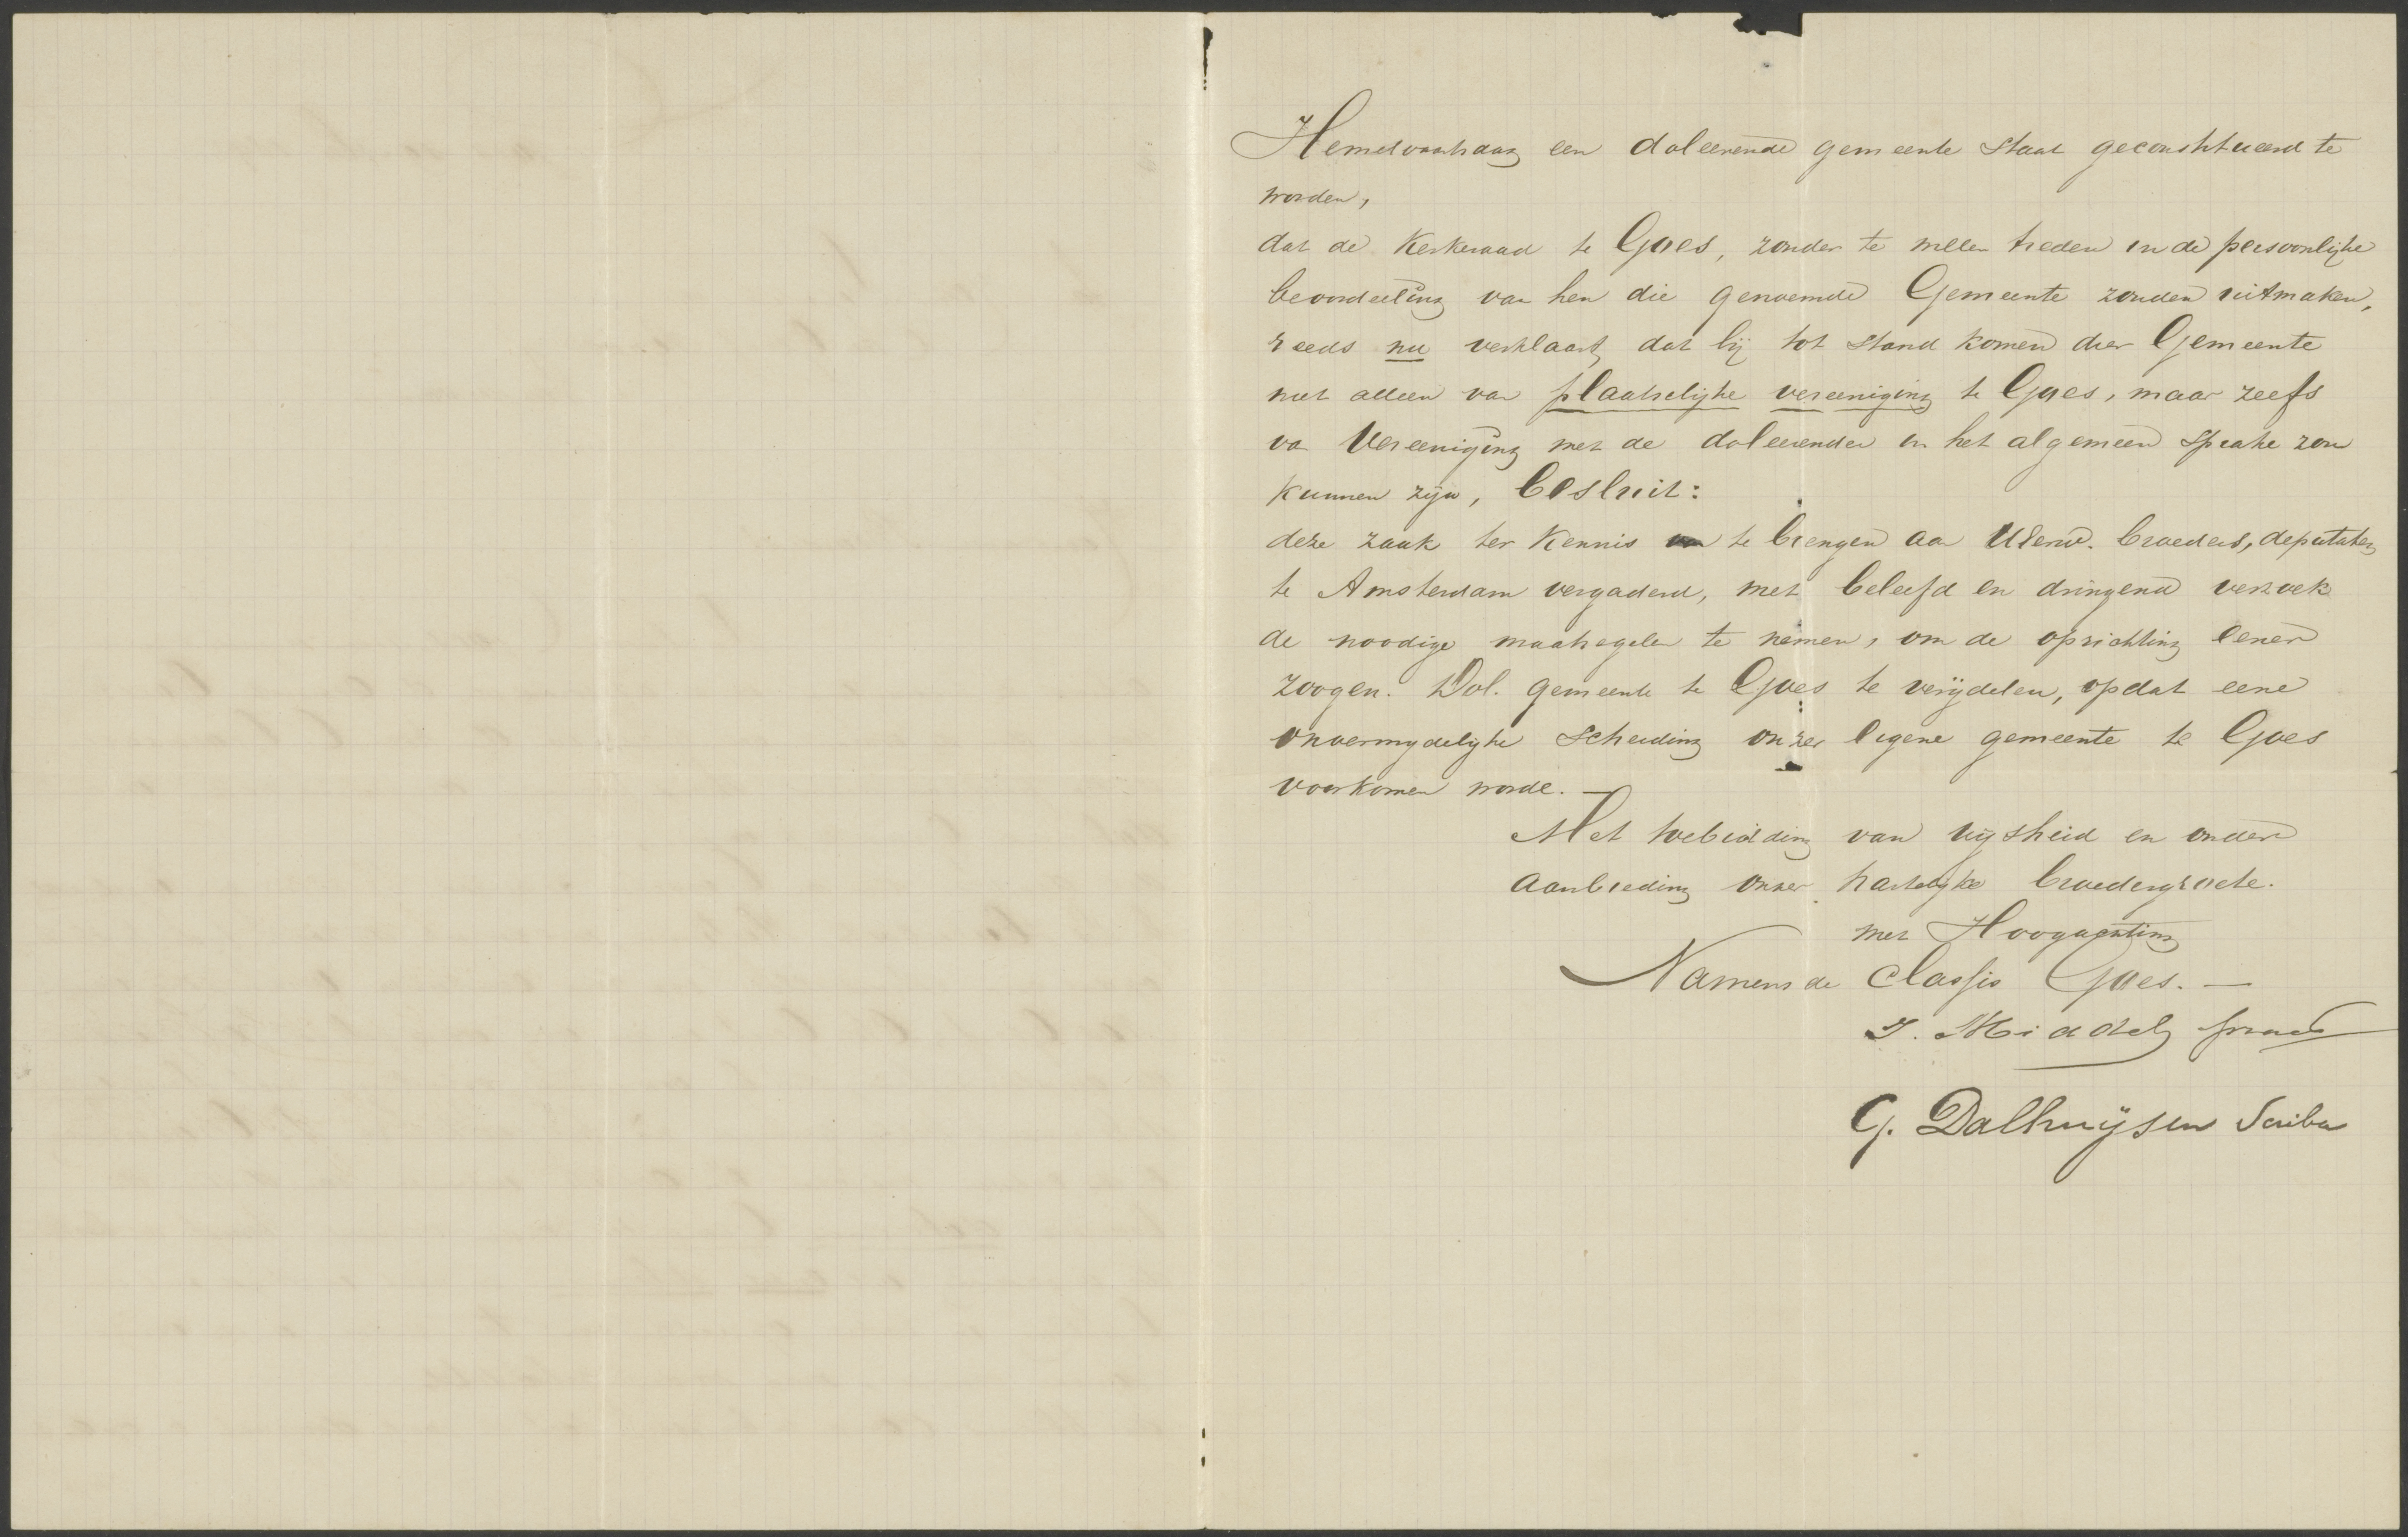 Hemelvaartsdag een doleerende gemeente staat geconstitueerd te
worden,
dat de Kerkeraad te Goes, zonder te willen treden in de persoonlijke
beoordeeling van hen die genoemde Gemeente zouden uitmaken,
reeds nu verklaart, dat bij tot stand komen dier Gemeente
niet alleen van plaatselijke vereeniging te Goes, maar zelfs
van Vereeniging met de doleerenden in het algemeen sprake zou
kunnen zijn, besluit:
deze zaak ter Kennis te brengen aan UEerw. broeders, deputaten
te Amsterdam vergaderd, met beleefd en dringend verzoek
de noodige maatregelen te nemen, om de oprichting eener
zoogen. Dol. gemeente te Goes te verijdelen, opdat eene
onvermijdelijke scheiding onzer eigene gemeente te Goes
voorkomen worde. —
Met toebidding van wijsheid en onder
aanbieding onzer hartelijke broedergroete.
met Hoogachting
Namens de Classis Goes. —
J. Middel, praes
G. Dalhuijsen Scriba